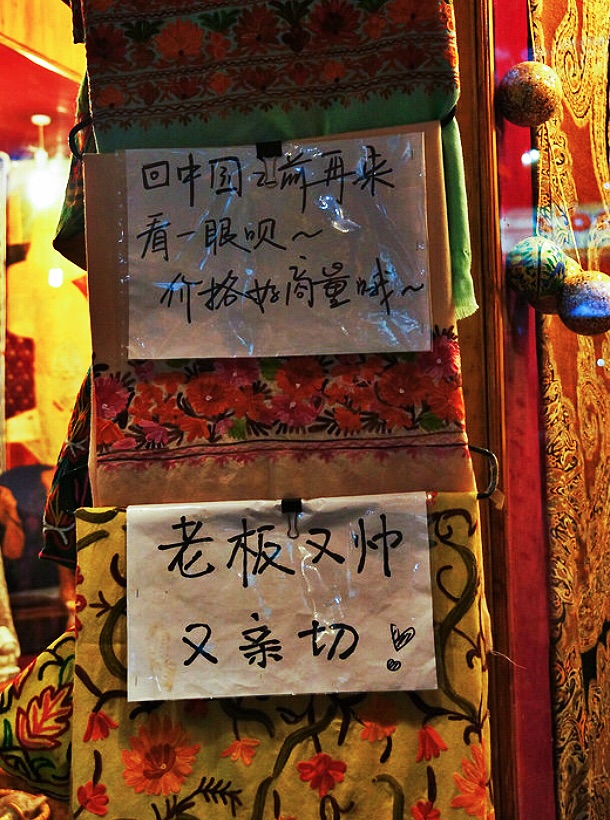 回中国之前再来
看一眼呗~
价格好商量哦~
老板又帅
又亲切